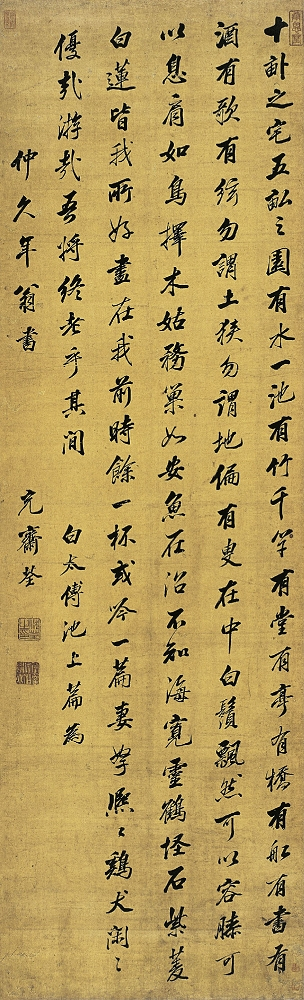 十畝之宅五畝之園有水一池有竹千竿有堂有亭有橋有船有書有
酒有歌有絃勿謂土狹勿謂地偏有叟在中白鬚飄然可以容膝可
以息肩如鳥擇木姑務巢安魚在沼不知海寬靈鶴怪石紫菱
白蓮皆我所好盡在我前時一杯或吟一篇妻孥熙〻鷄犬閑〻
優哉游哉吾將終老乎其間
白太傅池上篇為
仲久年翁書
充齋荃